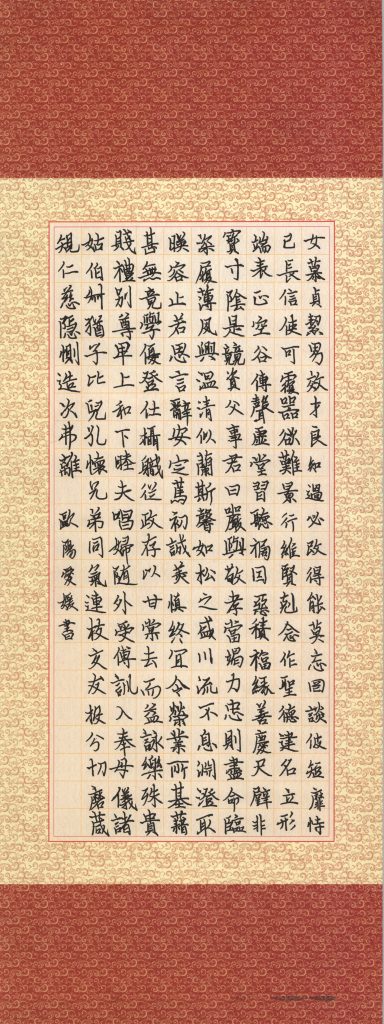 女慕貞絜男效才良知過必改得能莫忘罔談彼短靡恃
己長信使可覆器欲難景行維賢剋念作聖德建名立形
端表正空谷傳聲虛堂習聽禍因惡積福緣善慶尺璧非
寶寸陰是競資父事君曰嚴與敬孝當竭力忠則盡命臨
深履薄夙興溫清似蘭斯馨如松之盛川流不息淵澄取
暎容止若思言辭安定篤初誠美慎終宜令榮業所基藉
甚無竟學優登仕攝職從政存以甘棠去而益詠樂殊貴
賤禮別尊卑上和下睦夫唱婦隨外受傅訓入奉母儀諸
姑伯叔猶子比兒孔懷兄弟同氣連枝交友投分切磨箴
規仁慈隱惻造次弗離 歐陽愛媛書